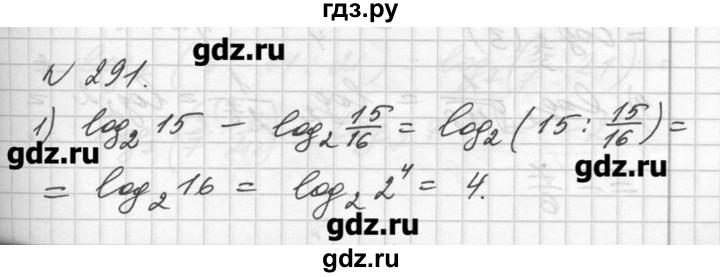 гдз.ру
gdz.ru
N 291.
1) log₂ 15 − log₂ 15/16 = log₂ (15 : 15/16) =
gdz.ru
gdz.ru
= log₂ 16 = log₂ 2⁴ = 4.
gdz.ru
gdz.ru